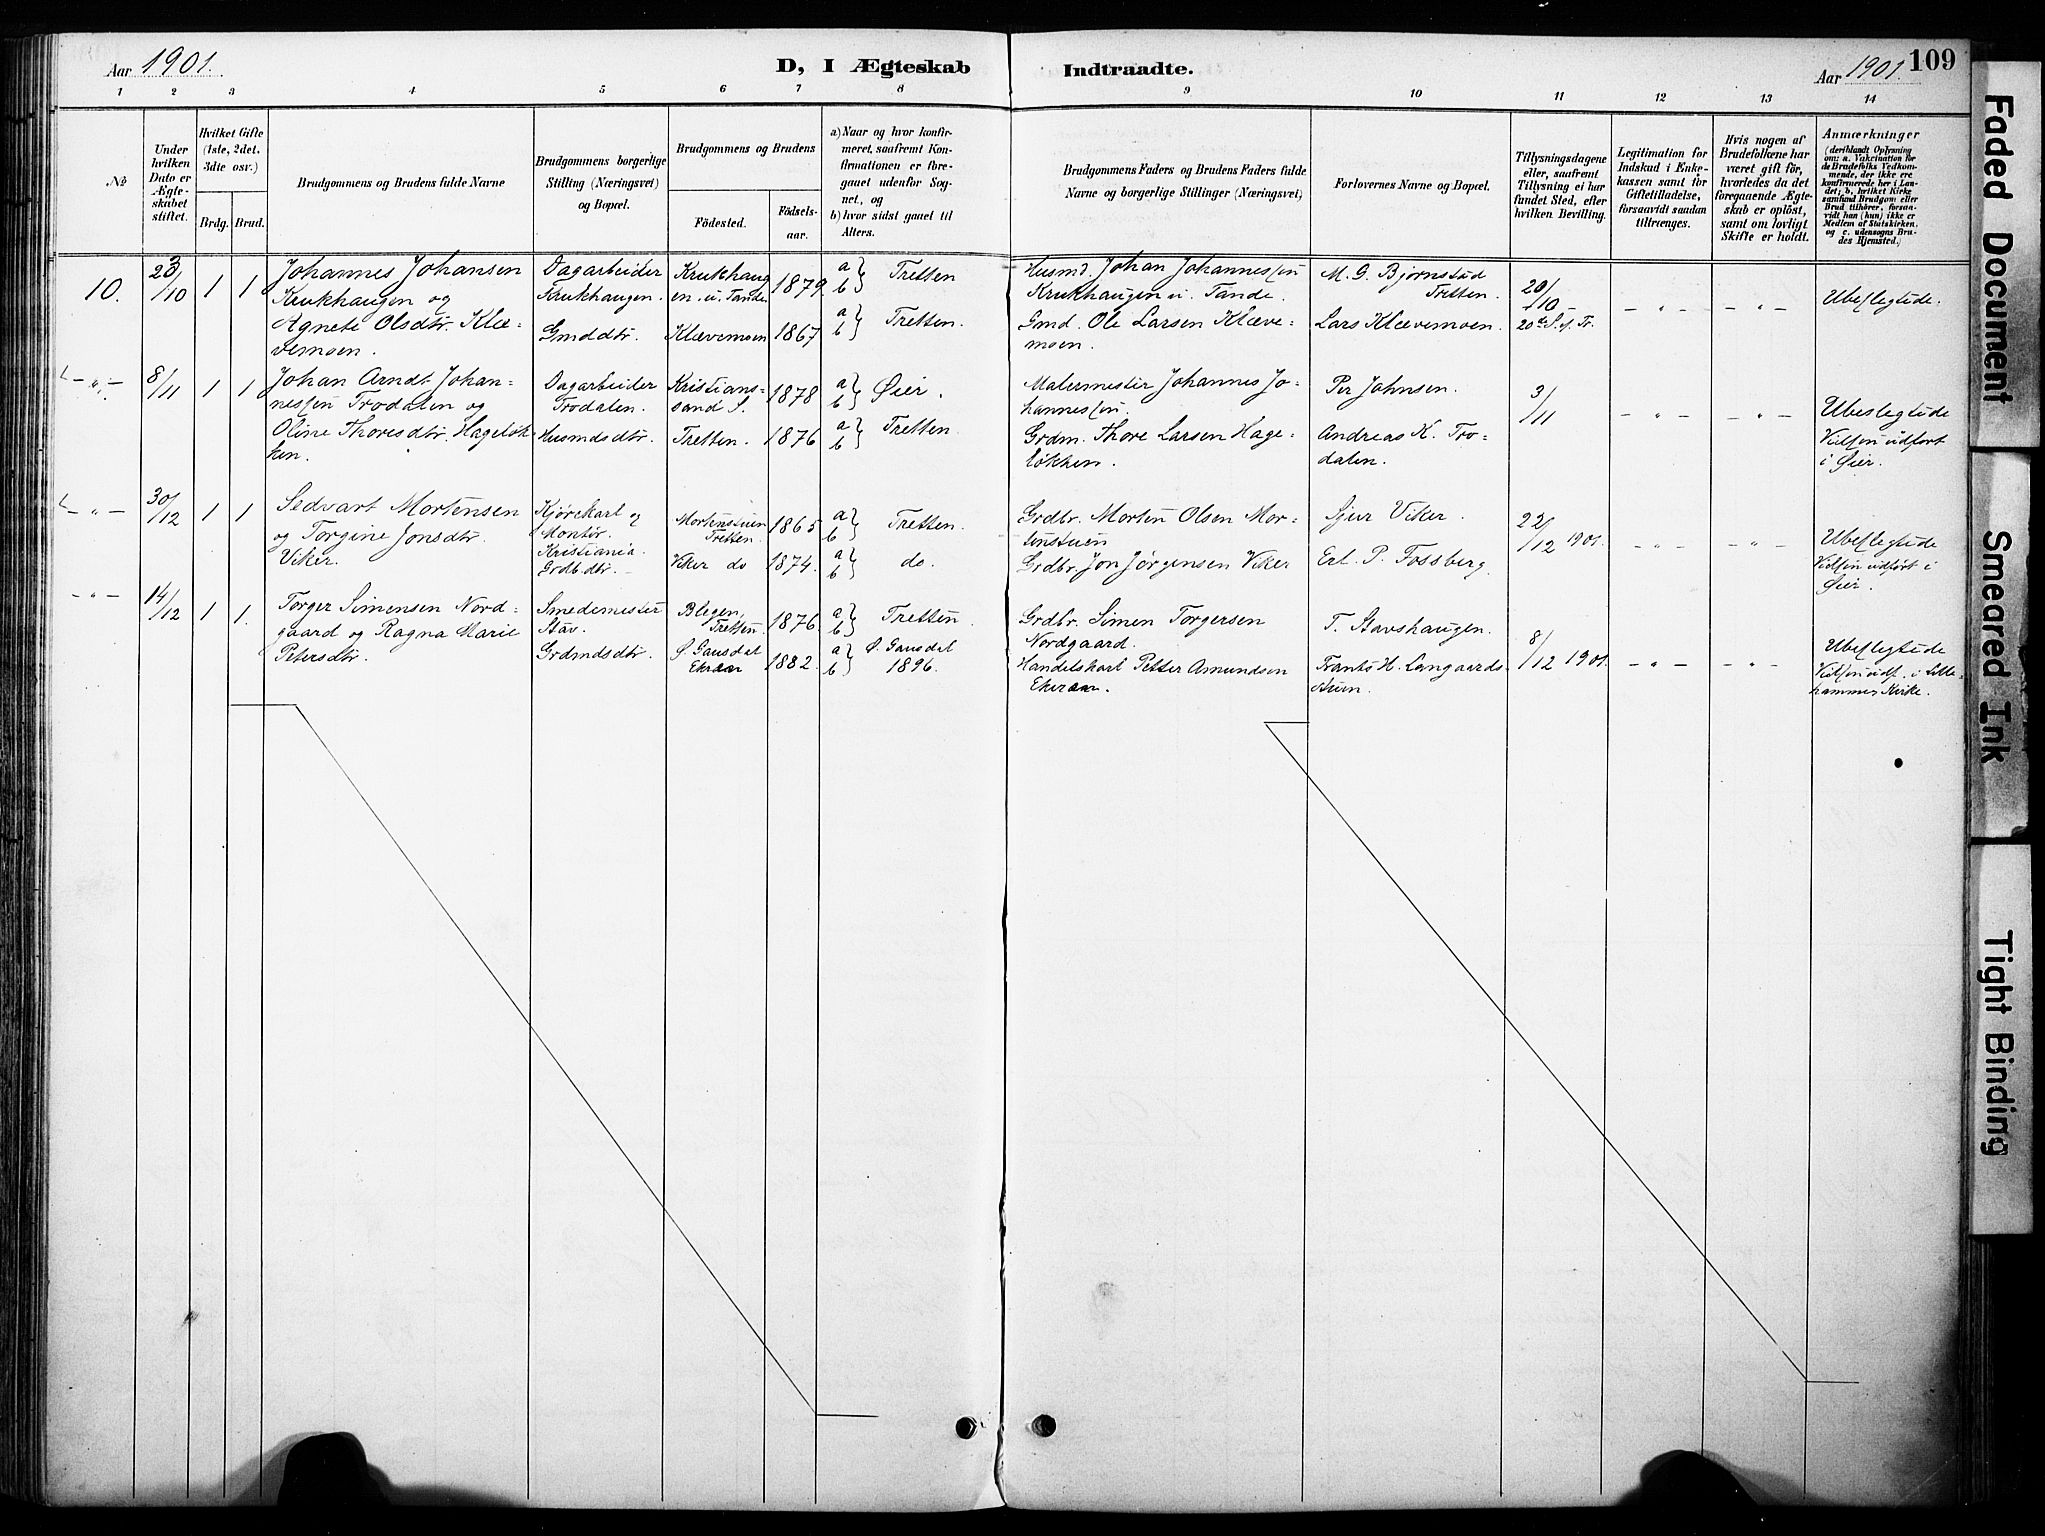 Aar 1901.
D, I Ægteskab
Indtraadte.
Aar 1901.
109
1 2 3 4 5 6 7 8 9 10 11 12 13 14
№
Under
hvilken
Dato er
Ægte-
skabet
stiftet.
Hvilket Gifte
(1ste, 2det,
3die osv.)
Brdg. Brud.
Brudgommens og Brudens fulde Navne
Brudgommens borgerlige
Stilling (Næringsvei)
og Bopæl.
Brudgommens og Brudens
Födested.
Födsels-
aar.
a) Naar og hvor konfir-
meret, saafremt Kon-
firmationen er fore-
gaaet udenfor Sog-
net, og
b) hvor sidst gaaet til
Alters.
Brudgommens Faders og Brudens Faders fulde
Navne og borgerlige Stillinger (Næringsvei)
Forlovernes Navne og Bopæl.
Tillysningsdagene
eller, saafremt
Tillysning ei har
fundet Sted, efter
hvilken Bevilling.
Legitimation for
Indskud i Enke-
kassen samt for
Giftetilladelse,
forsaavidt saadan
tiltrænges.
Hvis nogen af
Brudefolkene har
været gift för,
hvorledes da det
foregaaende Ægte-
skab er oplöst,
samt om lovligt
Skifte er holdt.
Anmærkninger
(deriblandt Oplysning
om: a. Vakcination for
de Brudefolks Vedkom-
mende, der ikke ere
konfirmerede her i Lan-
det; b, hvilket Kirke-
samfund Brudgom eller
Brud tilhörer, forsaa-
vidt han (hun) ikke er
Medlem af Statskirken,
og c. udensogns Bru-
des Hjemsted.)
10.
23/10
1 1
Johannes Johansen
Krukhaugen og
Agnete Olsdtr. Klæ-
vemoen.
Dagarbeider
Krukhaugen.
Gmddtr.
Krukhaug
en u. Tande
Klævemoen
1879
1867
a} Tretten
b
a} Tretten.
b
Husmd. Johan Johannessen
Krukhaugen u. Tande.
Gmd. Ole Larsen Klæve-
moen.
M. G. Bjørnstad
Tretten.
Lars Klævemoen.
20/10 -
20de S. e. Tr.
- " -
- " -
Ubeslegtede.
- " -
8/11
1 1
Johan Arndt Johan-
nessen Trodalen og
Oline Thoresdtr. Hageløk-
ken.
Dagarbeider
Trodalen.
Husmdsdtr.
Kristians-
sand S.
Tretten.
1878
1876
a} Øier.
b
a} Tretten.
b
Malermester Johannes Jo-
hannessen.
Grdm. Thore Larsen Hage-
løkken.
Per Johnsen.
Andreas K. Tro-
dalen.
3/11
- " -
- " -
Ubeslegtede
Vielsen udført
i Øier.
- " -
30/12
1 1
Sedvart Mortensen
og Torgine Jonsdtr.
Viker.
Kjørekarl og
Montør.
Kristiania.
Grdb.dtr.
Mortenstuen
Tretten.
Viker do
1865
1874.
a} Tretten.
b
a} do.
b
Grdbr. Morten Olsen Mor-
tenstuen
Grdbr. Jon Jørgensen Viker
Sjur Viker.
Erl. P. Fossberg.
22/12 1901.
- " -
- " -
Ubeslegtede
Vielsen udført i
Øier.
- " -
14/12
1 1.
Torger Simensen Nord-
gaard og Ragna Marie
Petersdtr.
Smedemester
Stav.
Grdmdsdtr.
Blegen,
Tretten.
Ø. Gausdal
Ekraan
1876.
1882.
a} Tretten.
b
a} Ø. Gausdal
b 1896.
Grdbr. Simen Torgersen
Nordgaard.
Handelskarl Petter Amundsen
Ekraan.
T. Stavshaugen.
Frants H. Langaards-
stuen.
8/12 1901.
- " -
- " -
Ubeslegtede
Vielsen udf. i Lille-
hammer Kirke.
Faded Document
Smeared Ink
Tight Binding